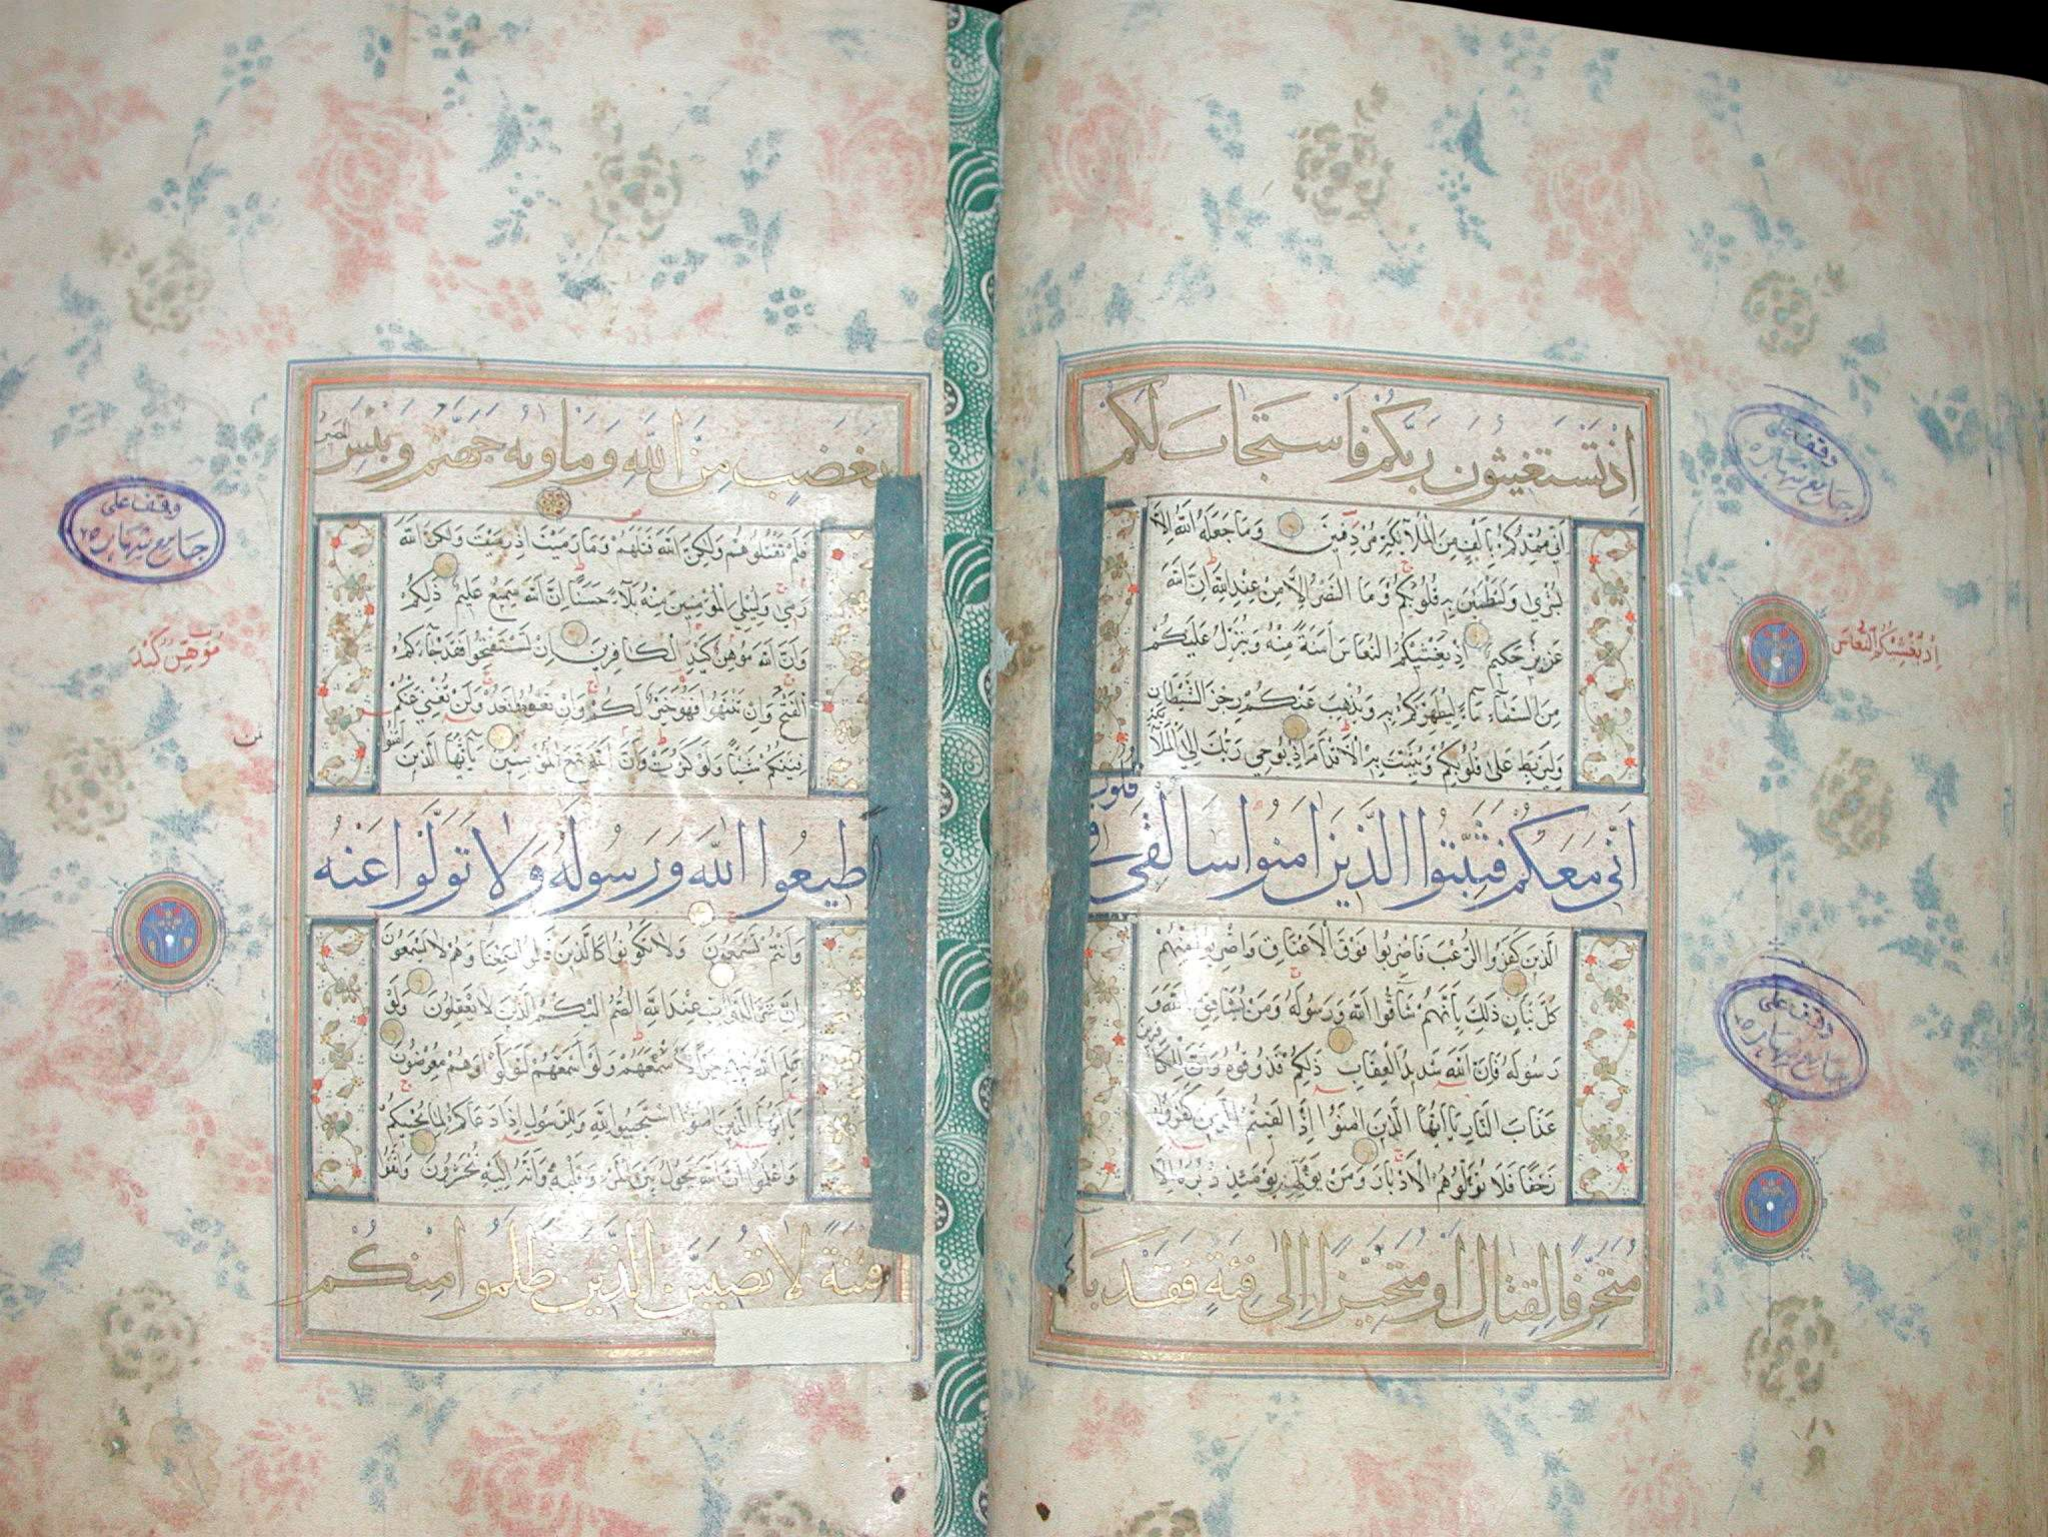 اِذْ تَسْتَغِيثُونَ رَبَّكُمْ فَاسْتَجَابَ لَكُمْ
اَنِّي مُمِدُّكُمْ بِاَلْفٍ مِنَ الْمَلَٓائِكَةِ مُرْدِفِينَ وَمَا جَعَلَهُ اللّٰهُ اِلَّا
بُشْرٰى وَلِتَطْمَئِنَّ بِهِ قُلُوبُكُمْ وَمَا النَّصْرُ اِلَّا مِنْ عِنْدِ اللّٰهِ اِنَّ اللّٰهَ
عَزِيزٌ حَكِيمٌ اِذْ يُغَشِّيكُمُ النُّعَاسَ اَمَنَةً مِنْهُ وَيُنَزِّلُ عَلَيْكُمْ
مِنَ السَّمَٓاءِ مَٓاءً لِيُطَهِّرَكُمْ بِهِ وَيُذْهِبَ عَنْكُمْ رِجْزَ الشَّيْطَانِ
وَلِيَرْبِطَ عَلٰى قُلُوبِكُمْ وَيُثَبِّتَ بِهِ الْاَقْدَامَ اِذْ يُوحِي رَبُّكَ اِلَى الْمَلَٓائِكَةِ
اَنِّي مَعَكُمْ فَثَبِّتُوا الَّذِينَ اٰمَنُوا سَاُلْقِي فِي قُلُوبِ
الَّذِينَ كَفَرُوا الرُّعْبَ فَاضْرِبُوا فَوْقَ الْاَعْنَاقِ وَاضْرِبُوا مِنْهُمْ
كُلَّ بَنَانٍ ذٰلِكَ بِاَنَّهُمْ شَٓاقُّوا اللّٰهَ وَرَسُولَهُ وَمَنْ يُشَاقِقِ اللّٰهَ وَ
رَسُولَهُ فَاِنَّ اللّٰهَ شَدِيدُ الْعِقَابِ ذٰلِكُمْ فَذُوقُوهُ وَاَنَّ لِلْكَافِرِينَ
عَذَابَ النَّارِ يَٓا اَيُّهَا الَّذِينَ اٰمَنُوا اِذَا لَقِيتُمُ الَّذِينَ كَفَرُوا
زَحْفًا فَلَا تُوَلُّوهُمُ الْاَدْبَارَ وَمَنْ يُوَلِّهِمْ يَوْمَئِذٍ دُبُرَهُ اِلَّا
مُتَحَرِّفًا لِقِتَالٍ اَوْ مُتَحَيِّزًا اِلٰى فِئَةٍ فَقَدْ بَٓاءَ
وقف على
جامع شهاره
اِذْ يُغَشِّيكُمُ النُّعَاسَ
وقف على
جامع شهاره
بِغَضَبٍ مِنَ اللّٰهِ وَمَأْوٰيهُ جَهَنَّمُ وَبِئْسَ الْمَصِيرُ
فَلَمْ تَقْتُلُوهُمْ وَلٰكِنَّ اللّٰهَ قَتَلَهُمْ وَمَا رَمَيْتَ اِذْ رَمَيْتَ وَلٰكِنَّ اللّٰهَ
رَمٰى وَلِيُبْلِيَ الْمُؤْمِنِينَ مِنْهُ بَلَٓاءً حَسَنًا اِنَّ اللّٰهَ سَمِيعٌ عَلِيمٌ ذٰلِكُمْ
وَاَنَّ اللّٰهَ مُوهِنُ كَيْدِ الْكَافِرِينَ اِنْ تَسْتَفْتِحُوا فَقَدْ جَٓاءَكُمُ
الْفَتْحُ وَاِنْ تَنْتَهُوا فَهُوَ خَيْرٌ لَكُمْ وَاِنْ تَعُودُوا نَعُدْ وَلَنْ تُغْنِيَ عَنْكُمْ
فِئَتُكُمْ شَيْئًا وَلَوْ كَثُرَتْ وَاَنَّ اللّٰهَ مَعَ الْمُؤْمِنِينَ يَٓا اَيُّهَا الَّذِينَ اٰمَنُوا
اَطِيعُوا اللّٰهَ وَرَسُولَهُ وَلَا تَوَلَّوْا عَنْهُ
وَاَنْتُمْ تَسْمَعُونَ وَلَا تَكُونُوا كَالَّذِينَ قَالُوا سَمِعْنَا وَهُمْ لَا يَسْمَعُونَ
اِنَّ شَرَّ الدَّوَابِّ عِنْدَ اللّٰهِ الصُّمُّ الْبُكْمُ الَّذِينَ لَا يَعْقِلُونَ وَلَوْ
عَلِمَ اللّٰهُ فِيهِمْ خَيْرًا لَاَسْمَعَهُمْ وَلَوْ اَسْمَعَهُمْ لَتَوَلَّوْا وَهُمْ مُعْرِضُونَ
يَٓا اَيُّهَا الَّذِينَ اٰمَنُوا اسْتَجِيبُوا لِلّٰهِ وَلِلرَّسُولِ اِذَا دَعَاكُمْ لِمَا يُحْيِيكُمْ
وَاعْلَمُوا اَنَّ اللّٰهَ يَحُولُ بَيْنَ الْمَرْءِ وَقَلْبِهِ وَاَنَّهُ اِلَيْهِ تُحْشَرُونَ وَاتَّقُوا
فِتْنَةً لَا تُصِيبَنَّ الَّذِينَ ظَلَمُوا مِنْكُمْ
وقف على
جامع شهاره
مُوَهِّنٌ كَيْدَ